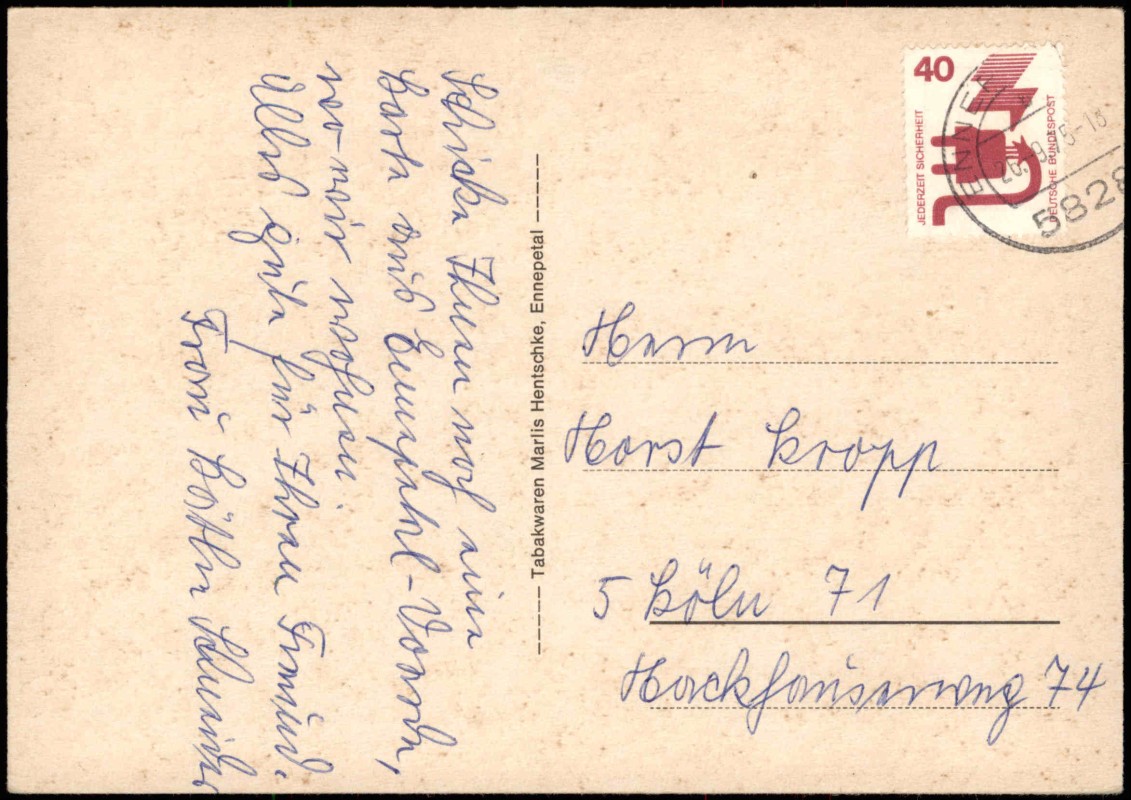 Schicke Ihnen noch eine
Karte aus Ennepetal-Voerde,
wo wir wohnen.
Alles gute für Ihren Freund.
Frau Käthe
Tabakwaren Marlis Hentschke, Ennepetal
40
JEDERZEIT SICHERHEIT
DEUTSCHE BUNDESPOST
ENNEP
26.-9.75-18
5828
Herrn
Horst Kropp
5 Köln 71
Hackhauserweg 74